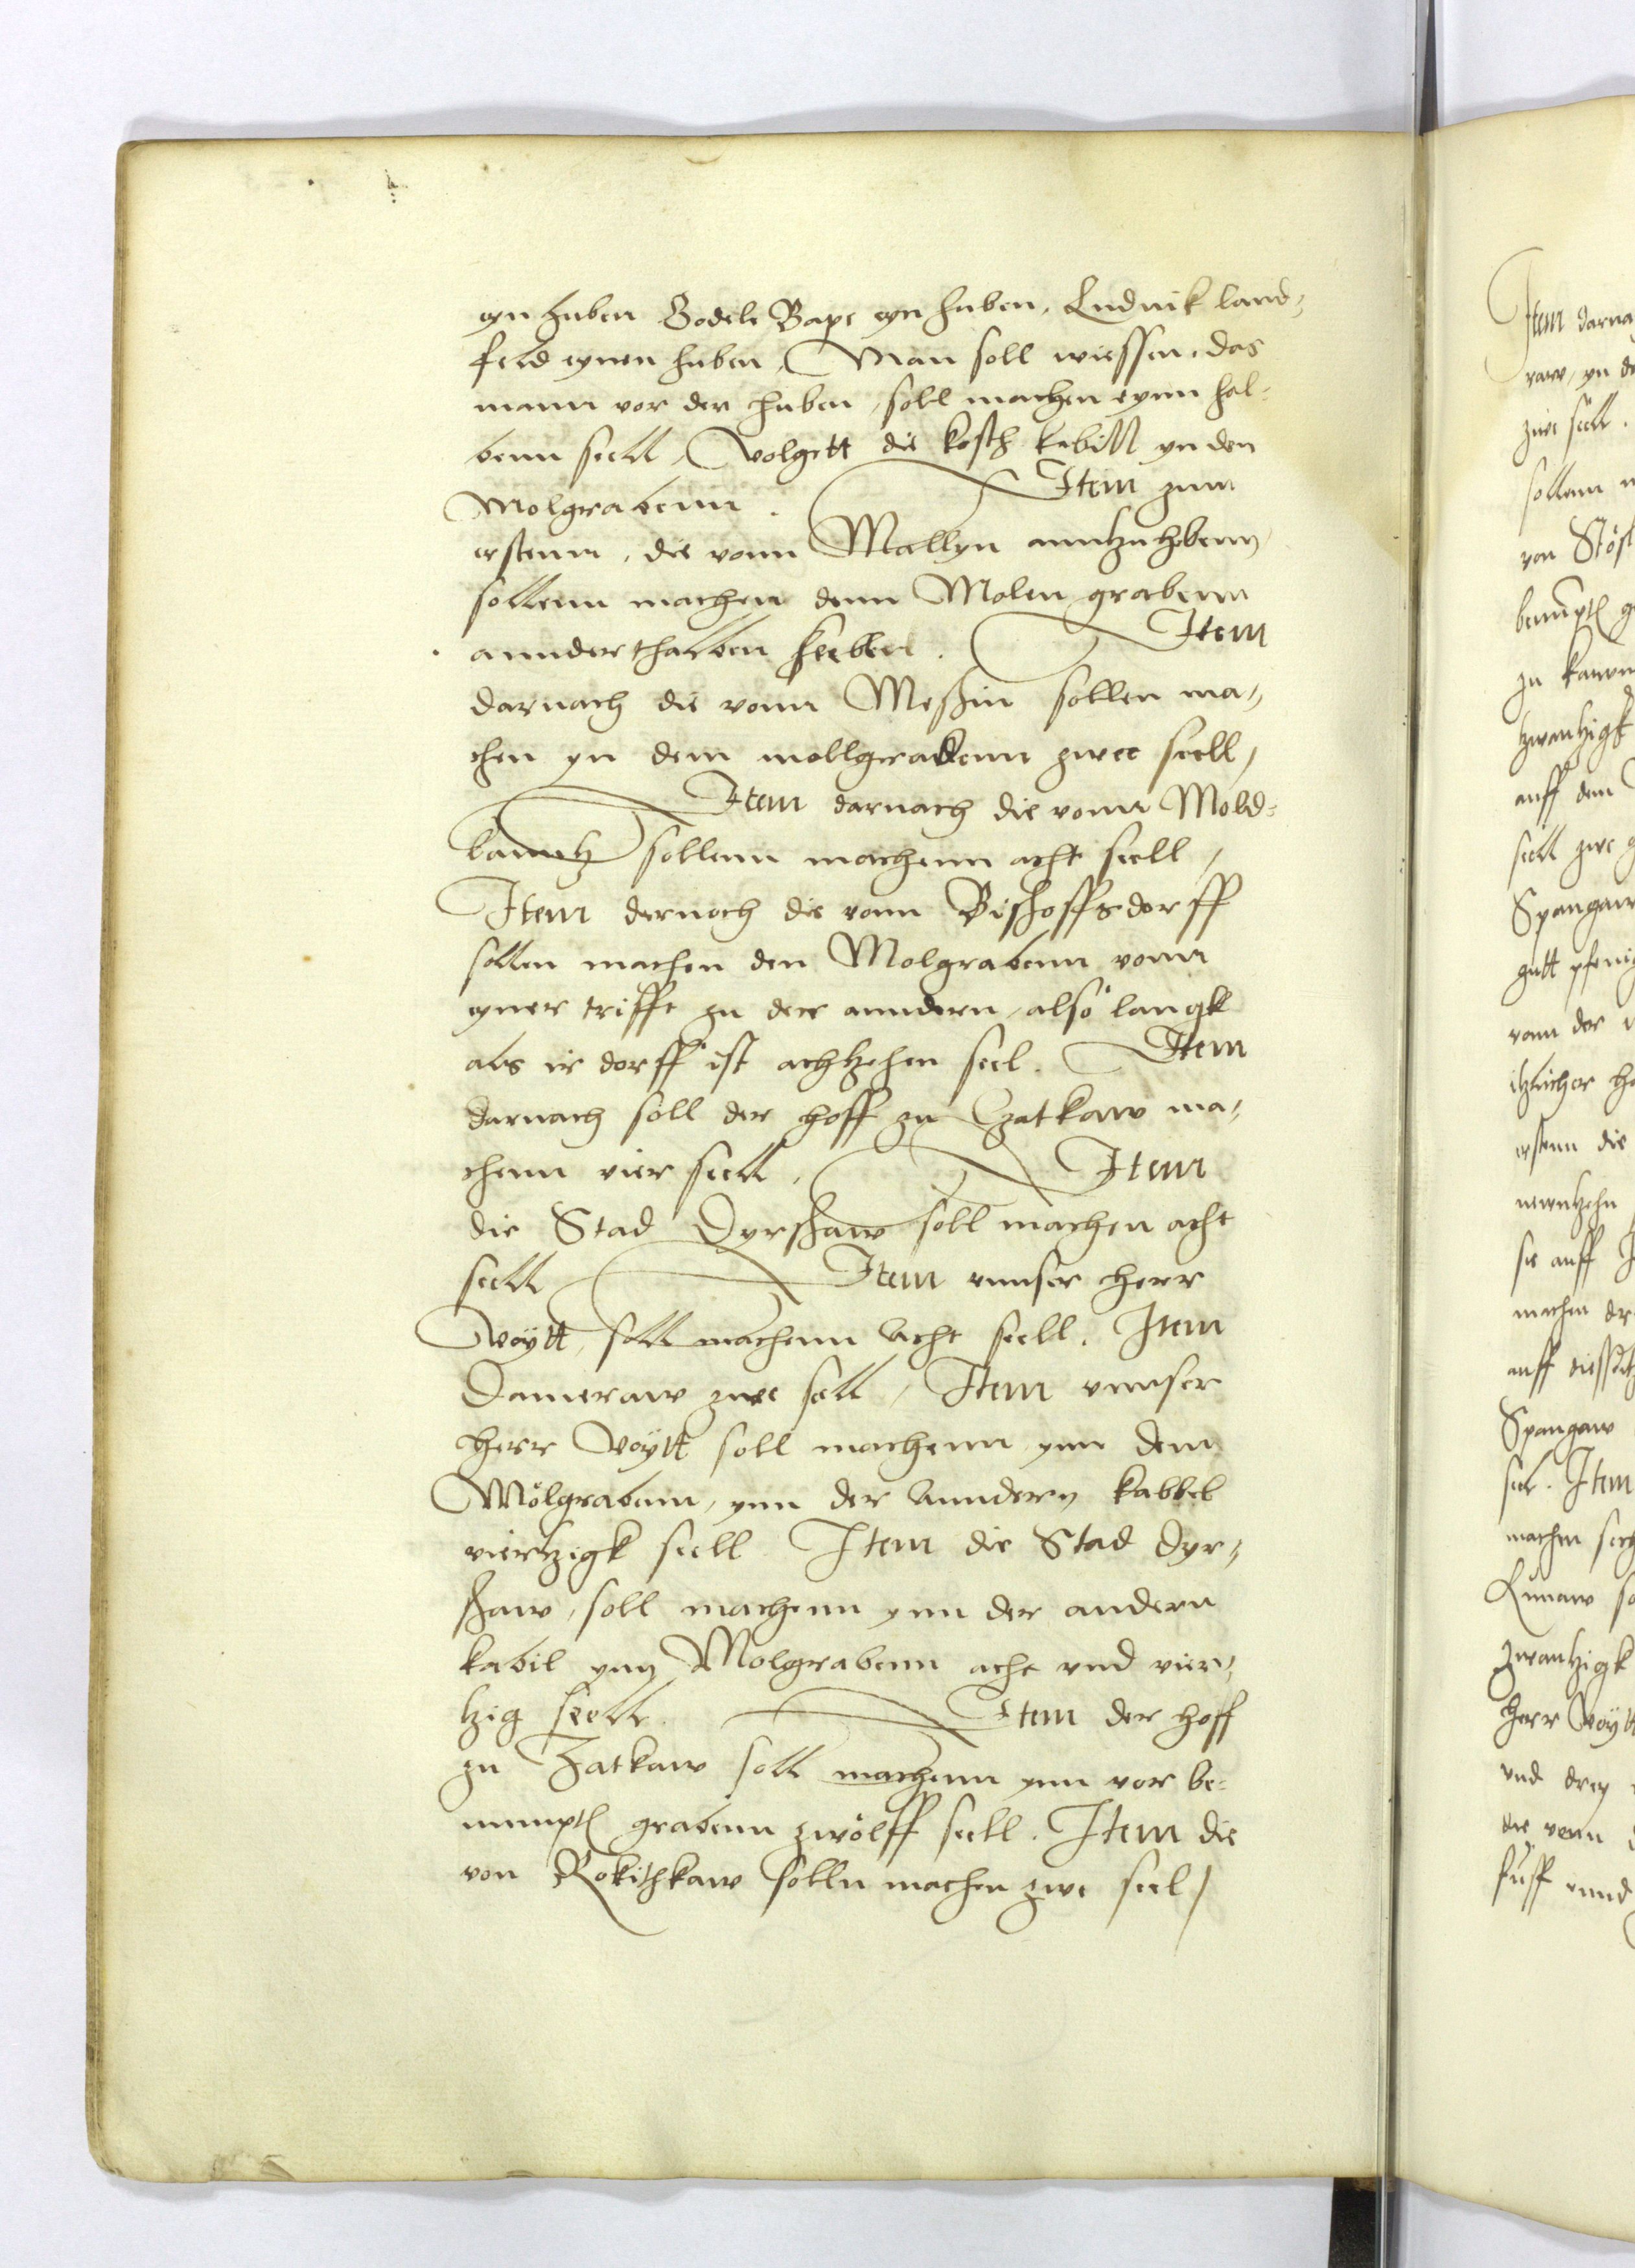 eyn huben Godele Bape eyn huben, Ludwik land-
feld eynen huben, Man soll wiessen, das
mann vor der huben, soll machen eynn hal-
benn seell, Volgett die kosch kabill yn den
Molgrabenn. Item zum
erstenn, die vonn Mallyn anntzuhebenn
sollenn machen denn Molen grabenn
annderthalben seellen. Item
darnach die vonn Meßin sollen ma-
chen yn dem mollgrabenn zwee seell,
Item darnach die vonn Mold-
banntz sollenn machenn acht seell,
Item dernoch die vonn Bischoffsdorff
sollen machen den Molgrabenn vonn
eyner trifft zu der anndern, also langk
als ir dorff ist achtzehen seel. Item
darnach soll der hoff zu Czatkaw ma-
chenn vier seell, Item
die Stad Dyrschaw soll machen acht
seell Item vnnser herr
Voytt, soll machenn Acht seell. Item
Dameraw zwe sell, Item vnnser
herr Voytt soll machenn ynn dem
Molgrabenn, ynn der Anndern kabbel
viertzigk seell Item die Stad Dyr-
schaw, soll machenn ynn der andern
kabil ynn Molgrabenn acht vnd vier-
tzig seell. Item der hoff
zu Zatkaw soll machenn ynn vor be-
numpten grabenn zwölff seell. Item die
von Rokithkaw solln machen zwe seel,
Item darna
raw, yn de
zwe seell.
sollenn
von Stös
benumpten g
zu
tzwantzigk
auff den
seell zwe g
Spangaw
gutt pfenig
vonn der
itzlicher h
erstenn die
newntzehn
sie auff
machen dr
auff
Spangaw
seel. Item
machen sech
Lunaw so
zwantzigk
herr Voytt
vnd drey
die vonn
fuff vnnd